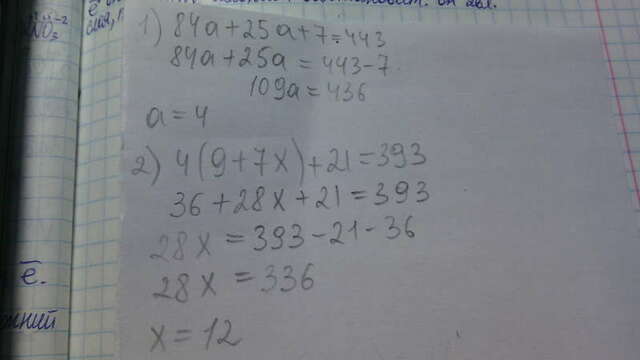 1) 84a+25a+7=443
84a+25a=443-7
109a=436
a=4
2) 4(9+7x)+21=393
36+28x+21=393
28x=393-21-36
28x=336
x=12
е.